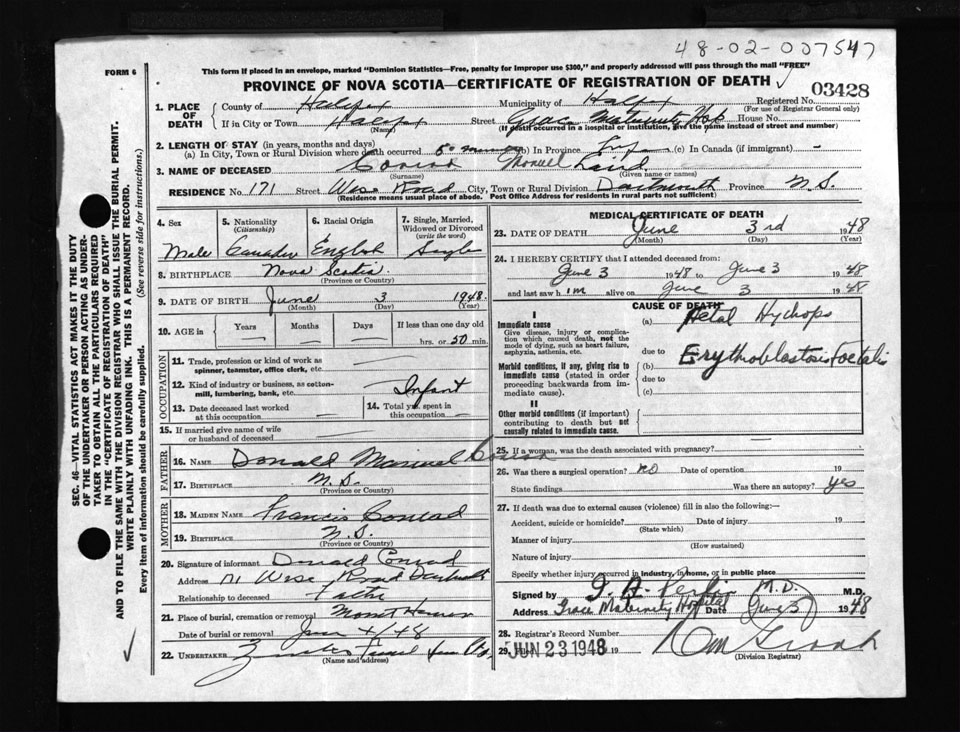 48-02-007547
FORM 6
This form if placed in an envelope, marked "Dominion Statistics—Free, penalty for improper use $300," and properly addressed will pass through the mail "FREE"
PROVINCE OF NOVA SCOTIA—CERTIFICATE OF REGISTRATION OF DEATH
03428
1. PLACE OF DEATH
County of Halifax Municipality of Halifax Registered No.
(For use of Registrar General only)
If in City or Town Halifax Street Grace Maternity Hosp House No.
(Name) (If death occurred in a hospital or institution, give the name instead of street and number)
2. LENGTH OF STAY (in years, months and days)
(a) In City, Town or Rural Division where death occurred 50 (b) In Province (c) In Canada (if immigrant) -
3. NAME OF DECEASED Conrad Manuel
(Surname) (Given name or names)
RESIDENCE No. 171 Street Wise Road City, Town or Rural Division Dartmouth Province N.S.
(Residence means usual place of abode. Post Office Address for residents in rural parts not sufficient)
SEC. 46—VITAL STATISTICS ACT MAKES IT THE DUTY
OF THE UNDERTAKER OR PERSON ACTING AS UNDER-
TAKER TO OBTAIN ALL THE PARTICULARS REQUIRED
IN THE "CERTIFICATE OF REGISTRATION OF DEATH"
AND TO FILE THE SAME WITH THE DIVISION REGISTRAR WHO SHALL ISSUE THE BURIAL PERMIT.
WRITE PLAINLY WITH UNFADING INK. THIS IS A PERMANENT RECORD.
Every item of information should be carefully supplied. (See reverse side for instructions.)
4. Sex 5. Nationality 6. Racial Origin 7. Single, Married,
(Citizenship) Widowed or Divorced
(write the word)
Male Canadian English Single
8. BIRTHPLACE Nova Scotia
(Province or Country)
9. DATE OF BIRTH June 3 1948
(Month) (Day) (Year)
10. AGE in Years Months Days If less than one day old
hrs. or 50 min.
OCCUPATION
11. Trade, profession or kind of work as
spinner, teamster, office clerk, etc.
12. Kind of industry or business, as cotton-
mill, lumbering, bank, etc. Infant
13. Date deceased last worked 14. Total yrs. spent in
at this occupation this occupation
15. If married give name of wife
or husband of deceased
FATHER
16. NAME Donald Manuel Conrad
17. BIRTHPLACE N.S.
(Province or Country)
MOTHER
18. MAIDEN NAME Francis Conrad
19. BIRTHPLACE N.S.
(Province or Country)
20. Signature of informant Donald Conrad
Address 171 Wise Road Dartmouth
Relationship to deceased Father
21. Place of burial, cremation or removal Mount
Date of burial or removal June 4/48
22. UNDERTAKER Funeral
(Name and address)
MEDICAL CERTIFICATE OF DEATH
23. DATE OF DEATH June 3rd 1948
(Month) (Day) (Year)
24. I HEREBY CERTIFY that I attended deceased from:
June 3 1948 to June 3 1948
and last saw him alive on June 3 1948
CAUSE OF DEATH
I
Immediate cause
Give disease, injury or complica-
tion which caused death, not the
mode of dying, such as heart failure,
asphyxia, asthenia, etc.
Morbid conditions, if any, giving rise to
immediate cause (stated in order
proceeding backwards from im-
mediate cause).
II
Other morbid conditions (if important)
contributing to death but not
causally related to immediate cause.
(a) Fetal Hydrops
due to
(b) Erythroblastosis Foetalis
due to
(c)
25. If a woman, was the death associated with pregnancy?
26. Was there a surgical operation? no Date of operation 19
State findings Was there an autopsy? yes
27. If death was due to external causes (violence) fill in also the following:—
Accident, suicide or homicide? Date of injury 19
(State which)
Manner of injury
(How sustained)
Nature of injury
Specify whether injury occurred in industry, in home, or in public place
Signed by M.D. M.D.
Address Grace Maternity Hospital Date June 3 1948
28. Registrar's Record Number
29. Filed JUN 23 1948 19
(Division Registrar)